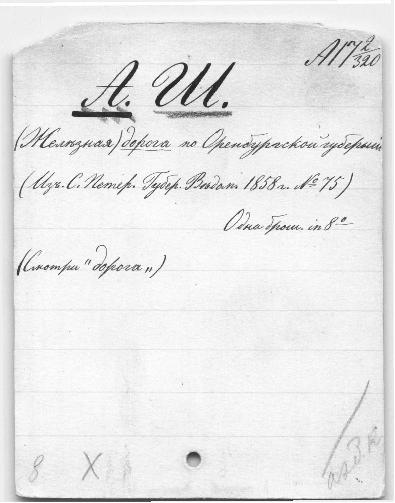 А17 2/320
А. Ш.
(Желѣзная) дорога по Оренбургской губерніи
(Изъ С. Петер. Губер. Вѣдом. 1858 г. № 75)
Одна брош. in 8º
(Смотри "дорога")
8 X